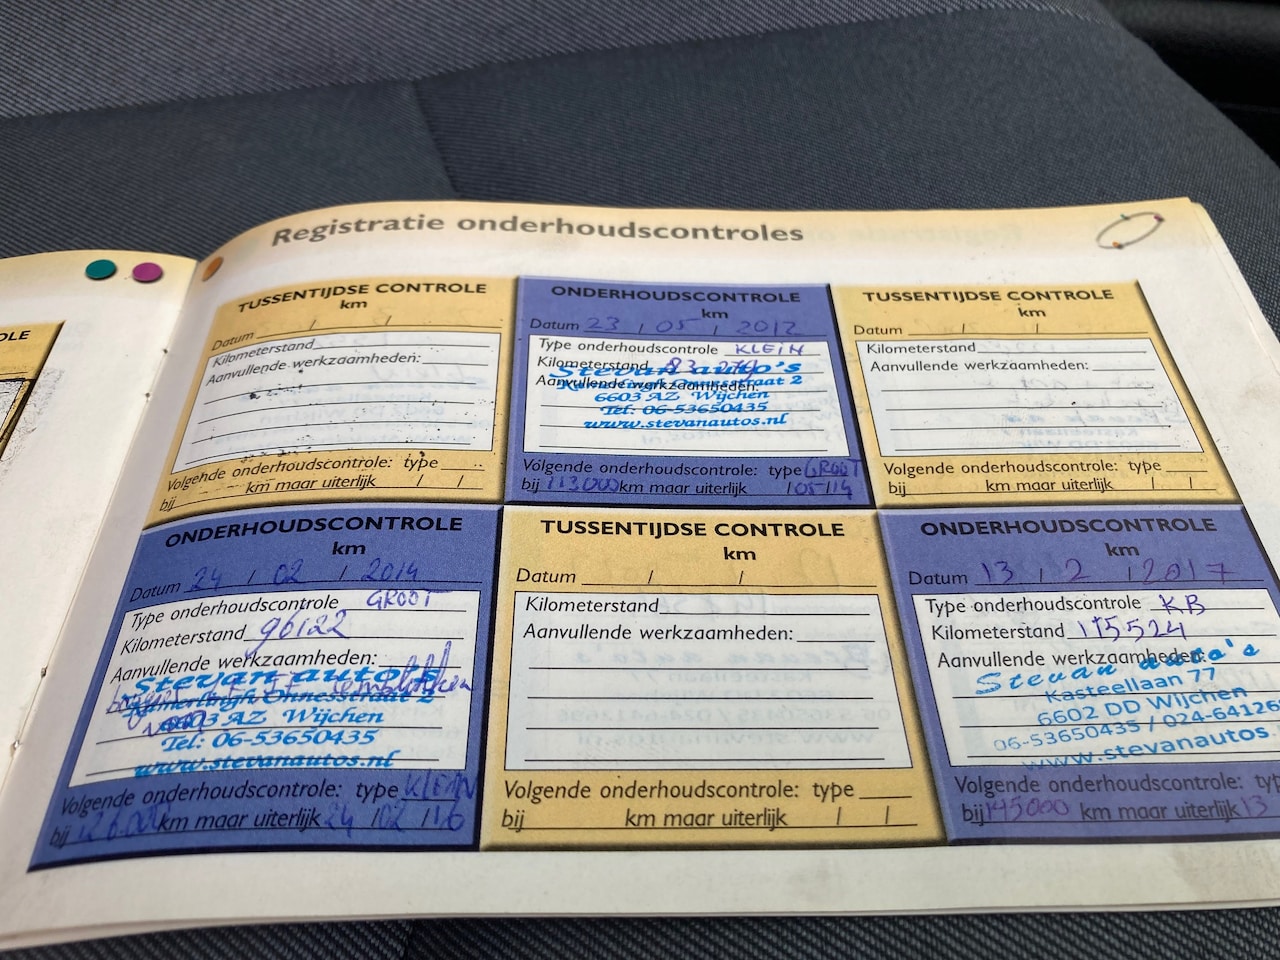 OLE
Registratie onderhoudscontroles
TUSSENTIJDSE CONTROLE
km
Datum / /
Kilometerstand
Aanvullende werkzaamheden:
Volgende onderhoudscontrole: type
bij km maar uiterlijk / /
ONDERHOUDSCONTROLE
km
Datum 23 / 05 / 2012
Type onderhoudscontrole KLEIN
Kilometerstand
Stevan auto's
Aanvullende werkzaamheden:
6603 AZ Wijchen
Tel: 06-53650435
www.stevanautos.nl
Volgende onderhoudscontrole: type GROOT
bij 113000 km maar uiterlijk /05/14
TUSSENTIJDSE CONTROLE
km
Datum / /
Kilometerstand
Aanvullende werkzaamheden:
Volgende onderhoudscontrole: type
bij km maar uiterlijk / /
ONDERHOUDSCONTROLE
km
Datum 24 / 02 / 2014
Type onderhoudscontrole GROOT
Kilometerstand 96122
Aanvullende werkzaamheden:
Stevan auto's
Kamerlingh Onnesstraat 2
6603 AZ Wijchen
Tel: 06-53650435
www.stevanautos.nl
Volgende onderhoudscontrole: type KLEIN
bij km maar uiterlijk 24 /02 /16
TUSSENTIJDSE CONTROLE
km
Datum / /
Kilometerstand
Aanvullende werkzaamheden:
Volgende onderhoudscontrole: type
bij km maar uiterlijk / /
ONDERHOUDSCONTROLE
km
Datum 13 / 2 / 2017
Type onderhoudscontrole KB
Kilometerstand 115524
Aanvullende werkzaamheden:
Stevan auto's
Kasteellaan 77
6602 DD Wijchen
06-53650435 / 024-64126
www.stevanautos.
Volgende onderhoudscontrole: ty
bij 145000 km maar uiterlijk 13